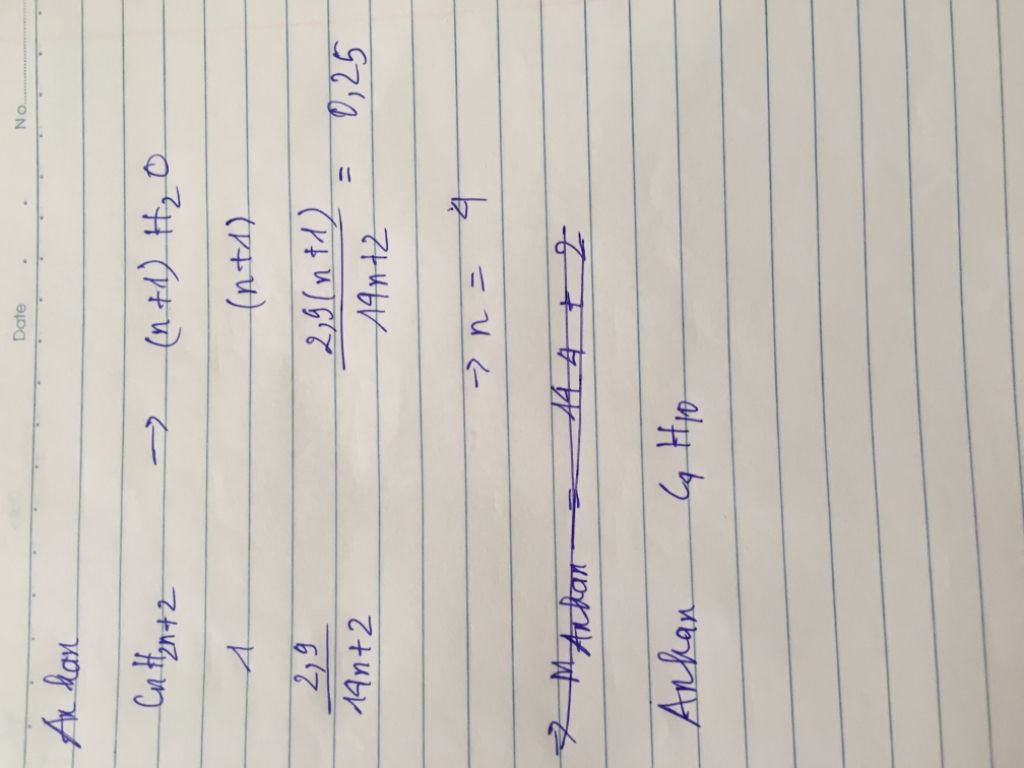 No.
Date
Ankan
CnH2n+2 → (n+1) H2O
1 (n+1)
2,9/14n+2 2,9(n+1)/14n+2 = 0,25
→ n = 4
⇒ M Ankan = 14.4 + 2
Ankan C4H10